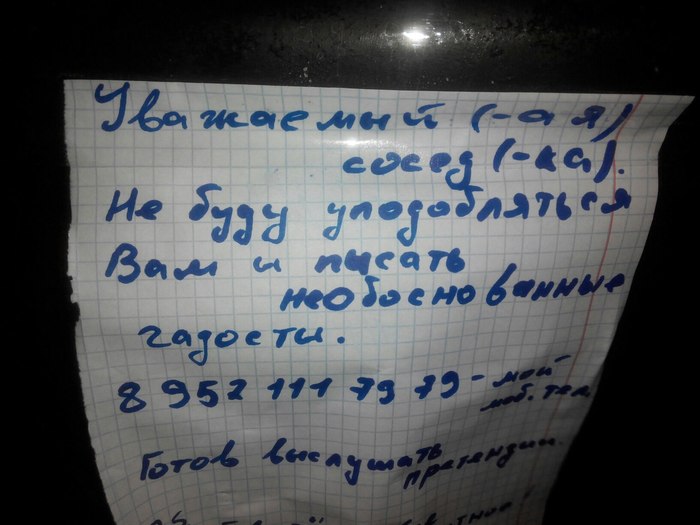 Уважаемый (-ая)
сосед (-ка).
Не буду уподобляться
Вам и писать
необоснованные
гадости.
8 952 111 79 79 - мой
моб. тел.
Готов выслушать
претендии.